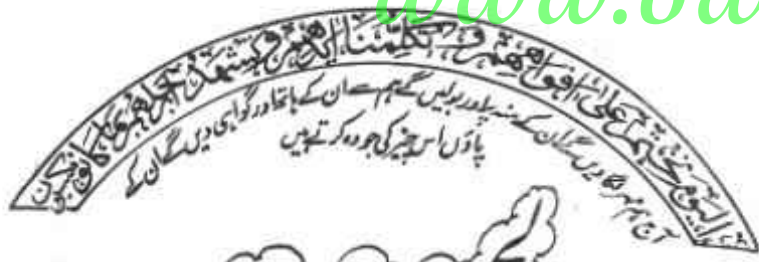 الیوم نختم علیٰ افواھھم و تکلمنا ایدیھم و تشھد ارجلھم بما کانوا یکسبون
آج ہم مہر لگا دیں گے ان کے منہ پر اور بولیں گے ہم سے ان کے ہاتھ اور گواہی دیں گے ان کے
پاؤں اس چیز کی جو وہ کرتے ہیں